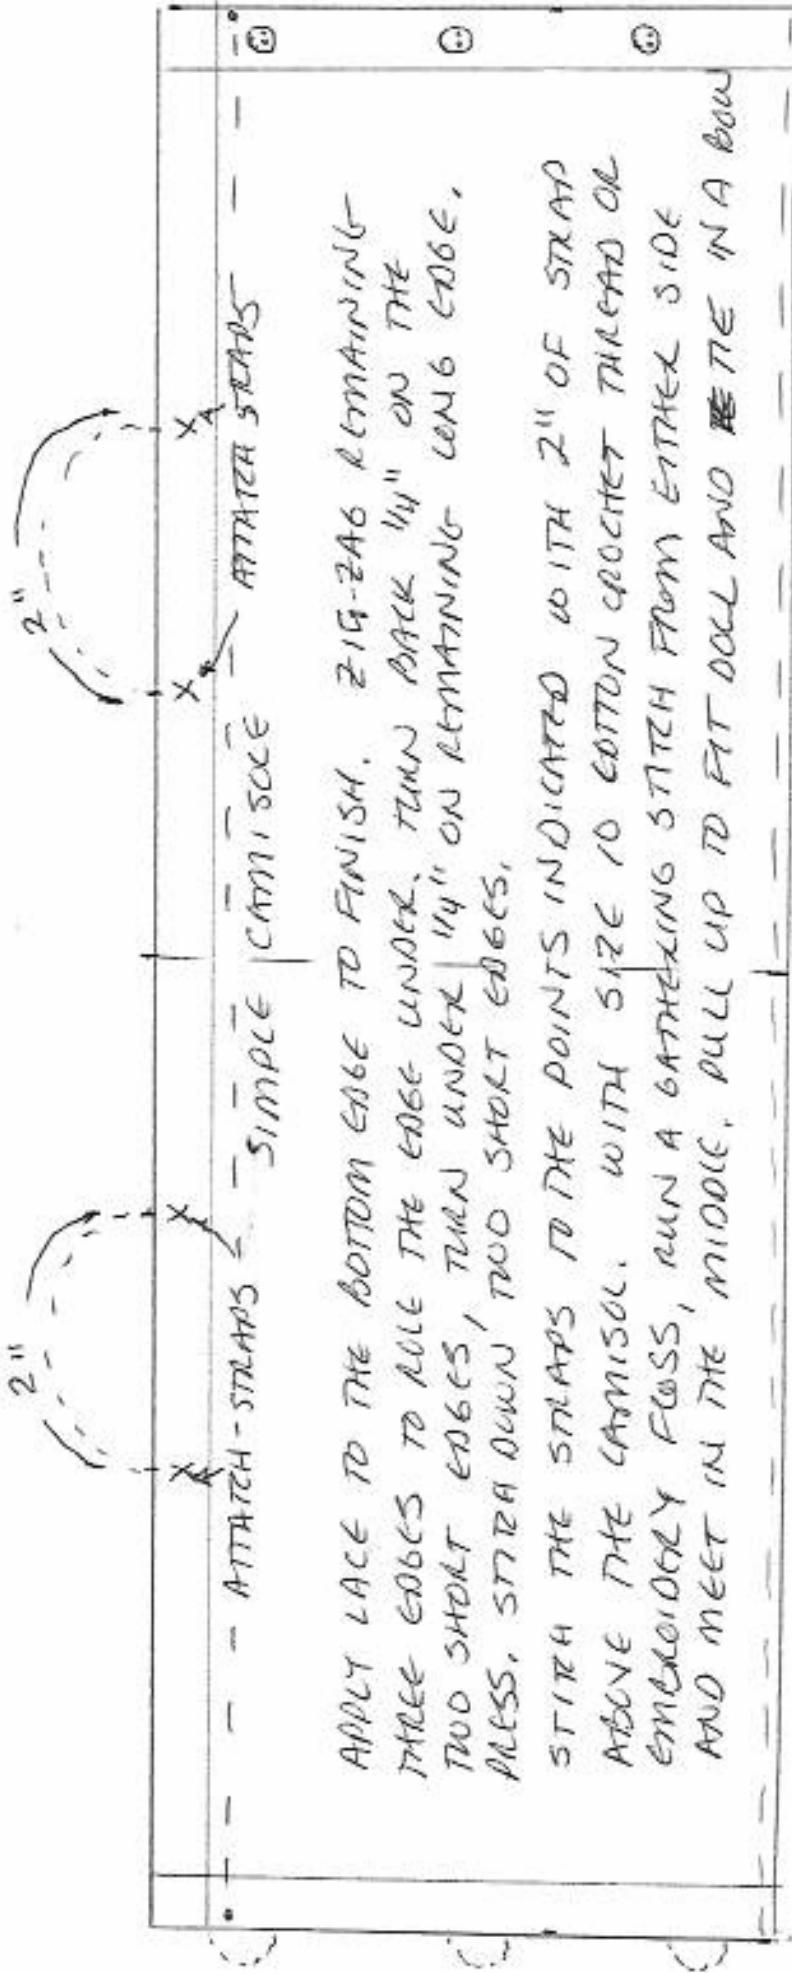 2" 2"
ATTATCH-STRAPS ATTATCH STRAPS
SIMPLE CAMISOLE
APPLY LACE TO THE BOTTOM EDGE TO FINISH. ZIG-ZAG REMAINING
THREE EDGES TO ROLL THE EDGE UNDER. TURN BACK 1/4" ON THE
TWO SHORT EDGES, TURN UNDER 1/4" ON REMAINING LONG EDGE.
PRESS. STITCH DOWN TWO SHORT EDGES.
STITCH THE STRAPS TO THE POINTS INDICATED WITH 2" OF STRAP
ABOVE THE CAMISOL. WITH SIZE 10 COTTON CROCHET THREAD OR
EMBROIDERY FLOSS, RUN A GATHERING STITCH FROM EITHER SIDE
AND MEET IN THE MIDDLE. PULL UP TO FIT DOLL AND TIE IN A BOW